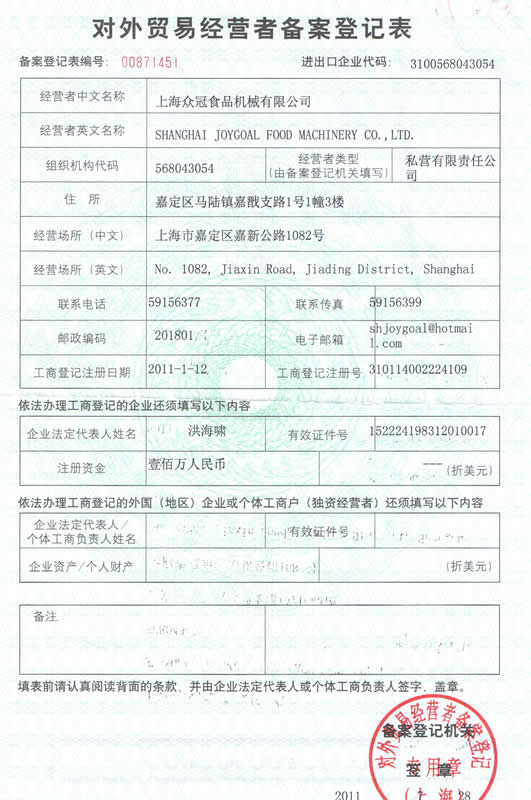 对外贸易经营者备案登记表
备案登记表编号: 00871451 进出口企业代码: 3100568043054
经营者中文名称 上海众冠食品机械有限公司
经营者英文名称 SHANGHAI JOYGOAL FOOD MACHINERY CO.,LTD.
组织机构代码 568043054 经营者类型 (由备案登记机关填写) 私营有限责任公司
住 所 嘉定区马陆镇嘉戬支路1号1幢3楼
经营场所(中文) 上海市嘉定区嘉新公路1082号
经营场所(英文) No. 1082, Jiaxin Road, Jiading District, Shanghai
联系电话 59156377 联系传真 59156399
邮政编码 201801 电子邮箱 shjoygoal@hotmail.com
工商登记注册日期 2011-1-12 工商登记注册号 310114002224109
依法办理工商登记的企业还须填写以下内容
企业法定代表人姓名 洪海啸 有效证件号 152224198312010017
注册资金 壹佰万人民币 (折美元)
依法办理工商登记的外国(地区)企业或个体工商户(独资经营者)还须填写以下内容
企业法定代表人/个体工商负责人姓名 有效证件号
企业资产/个人财产 (折美元)
备注
填表前请认真阅读背面的条款、并由企业法定代表人或个体工商负责人签字、盖章。
备案登记机关
签 章
对外贸易经营者备案登记
专用章
2011 28